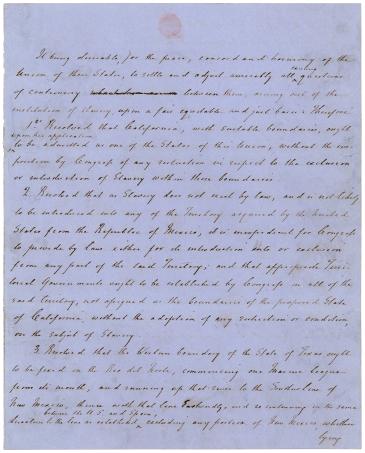 It being desirable, for the peace, concord and harmony of the
Union of these States, to settle and adjust amicably all existing questions
of controversy between them, arising out of the
institution of slavery, upon a fair equitable and just basis: Therefore
1st Resolved that California, with suitable boundaries, ought
upon her application
to be admitted as one of the States of this Union, without the im-
position by Congress of any restriction in respect to the exclusion
or introduction of Slavery within those boundaries.
2. Resolved that as Slavery does not exist by law, and is not likely
to be introduced into any of the Territory acquired by the United
States from the Republic of Mexico, it is inexpedient for Congress
to provide by law either for its introduction into or exclusion
from any part of the said Territory; and that appropriate Terri-
torial Governments ought to be established by Congress in all of the
said territory, not assigned as the boundaries of the proposed State
of California, without the adoption of any restriction or condition
on the subject of Slavery.
3. Resolved that the Western boundary of the State of Texas ought
to be fixed on the Rio del Norte, commencing one marine league
from its mouth, and running up that river to the Southern line of
New Mexico, thence with that line Eastwardly, and so continuing in the same
between the U.S. and Spain,
direction to the line as established, excluding any portion of New Mexico, whether
lying